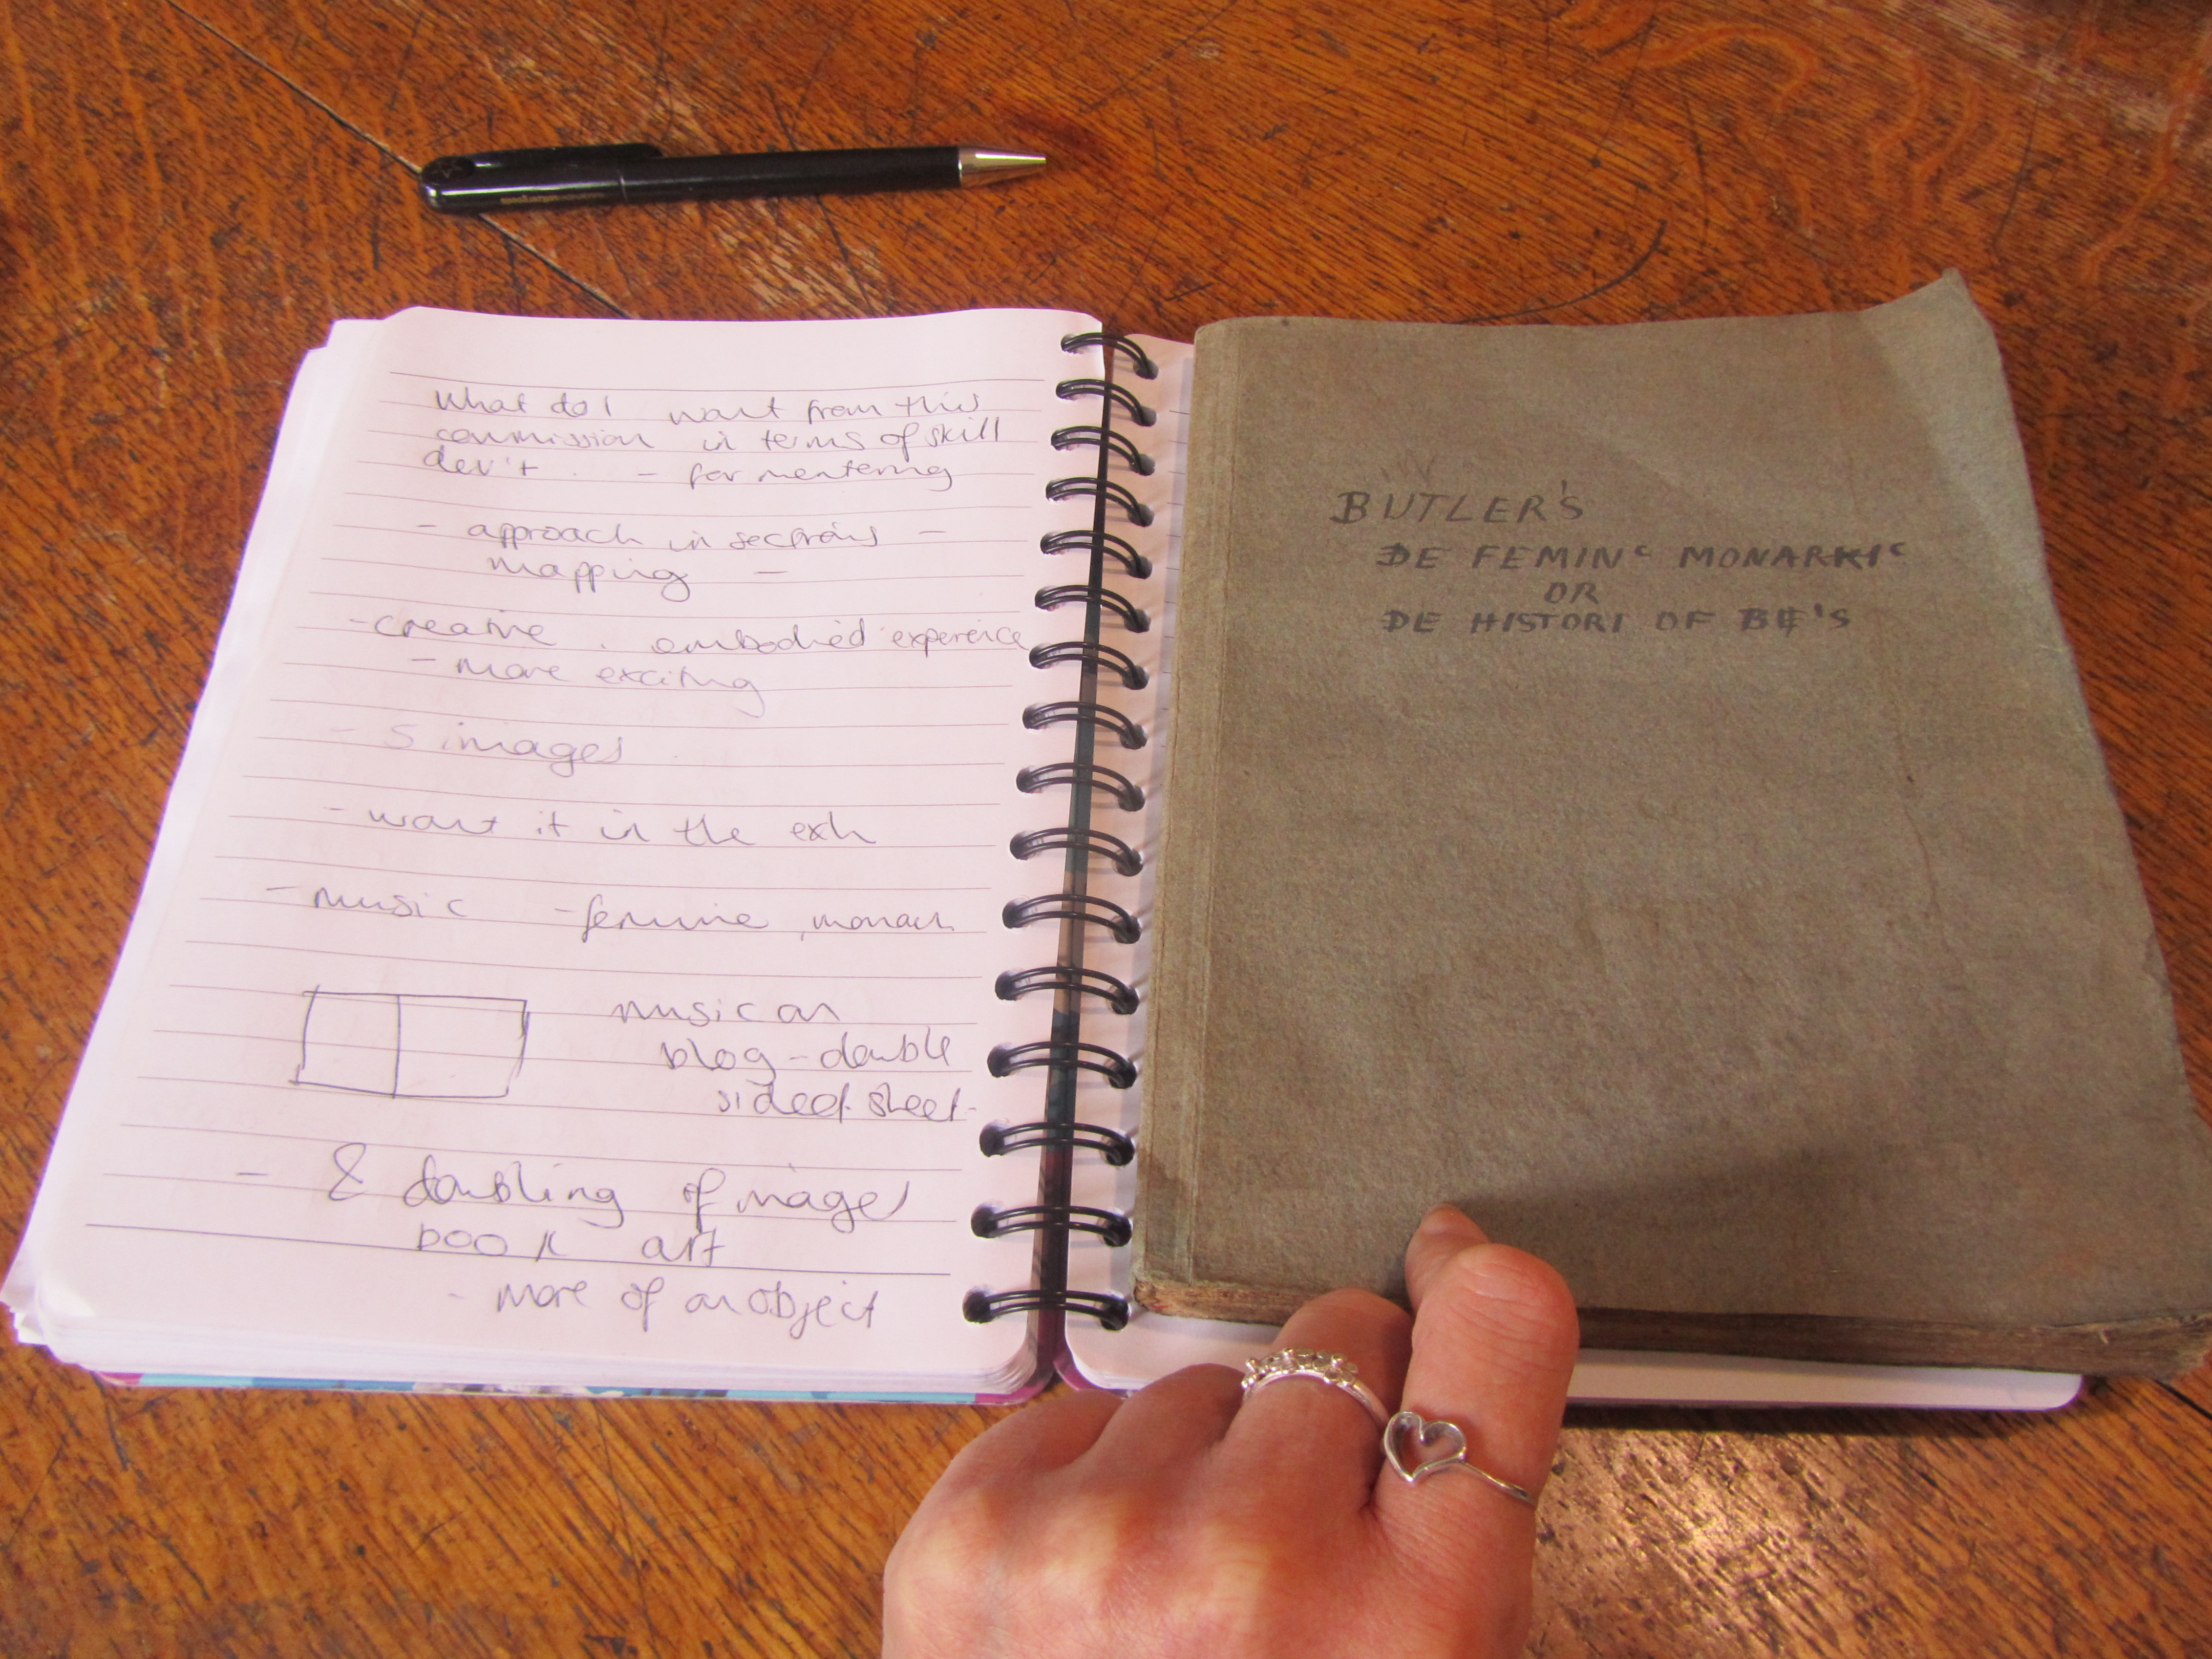 what do I want from this
commission in terms of skill
dev't. - for mentoring
- approach in sections -
mapping -
- creative . embodied experience
- more exciting
- 5 images
- want it in the exh
- music - femine, monarch
music on
blog - double
sided sheet -
- & doubling of images
book art
- more of an object
BUTLER'S
DE FEMINᶜ MONARKIᶜ
OR
DE HISTORI OF BE'S